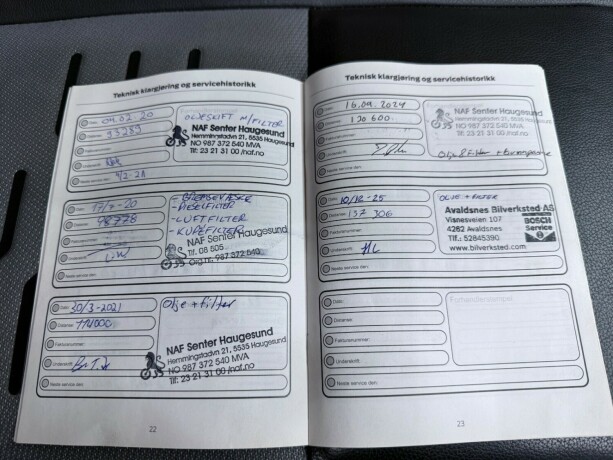 Teknisk klargjøring og servicehistorikk
Dato: 04.02.20
33253
OLJESKIFT M/FILTER
NAF Senter Haugesund
Hemmingstadvn 21, 5535 Haugesund
NO 987 372 540 MVA
Tlf: 23 21 31 00 /naf.no
4/2-21
17/7-20
- BREMSEVÆSKE
- DIESELFILTER
- LUFTFILTER
- KUPEFILTER
NAF Senter Haugesund
Tlf. 08 505
Org.nr. 987 372 540
Neste service den:
Dato: 30/3-2021
Olje + filter
Fakturanummer:
Underskrift:
NAF Senter Haugesund
Hemmingstadvn 21, 5535 Haugesund
NO 987 372 540 MVA
Tlf: 23 21 31 00 /naf.no
Neste service den:
22
Teknisk klargjøring og servicehistorikk
16.09.2024
130 600
NAF Senter Haugesund
Hemmingstadvn 21, 5535 Haugesund
NO 987 372 540 MVA
Tlf: 23 21 31 00 /naf.no
Dato: 10/12-25
137 306
Fakturanummer:
Underskrift:
OLJE + FILTER
Avaldsnes Bilverksted AS
Visnesveien 107
4262 Avaldsnes
Tlf.: 52845390
www.bilverksted.com
BOSCH
Service
Neste service den:
Dato:
Distanse:
Fakturanummer:
Underskrift:
Neste service den:
Forhandlerstempel
23